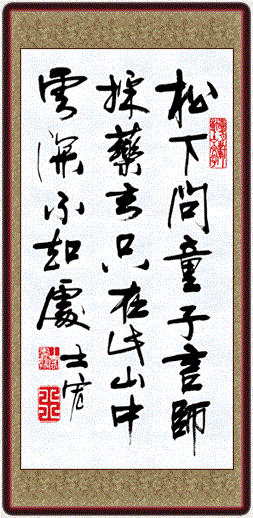 松下問童子言師
採藥去只在此山中
雲深不知處 士宏